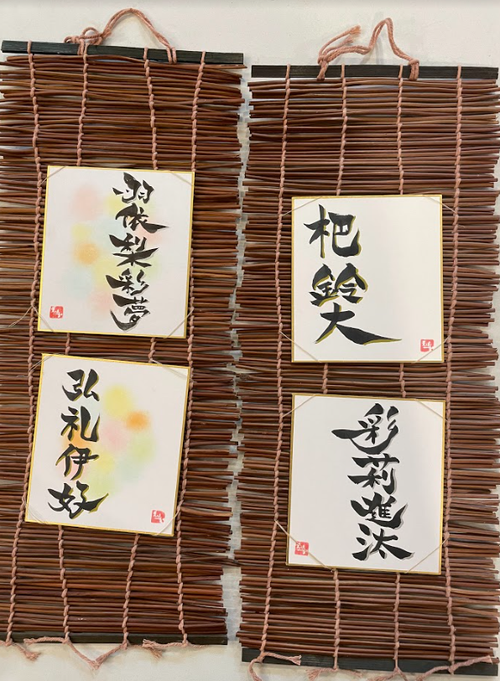 羽依梨彩夢
弘礼伊好
杷鈴大
彩莉進汰